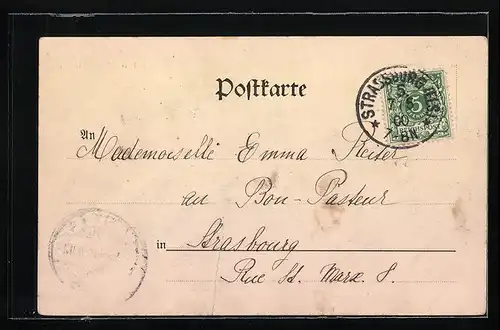 Postkarte
STRASSBURG (ELS.)
5
00
7-8N
An Mademoiselle Emma Reiter
au Bon-Pasteur
in Strasbourg
Rue St. Marx 8.